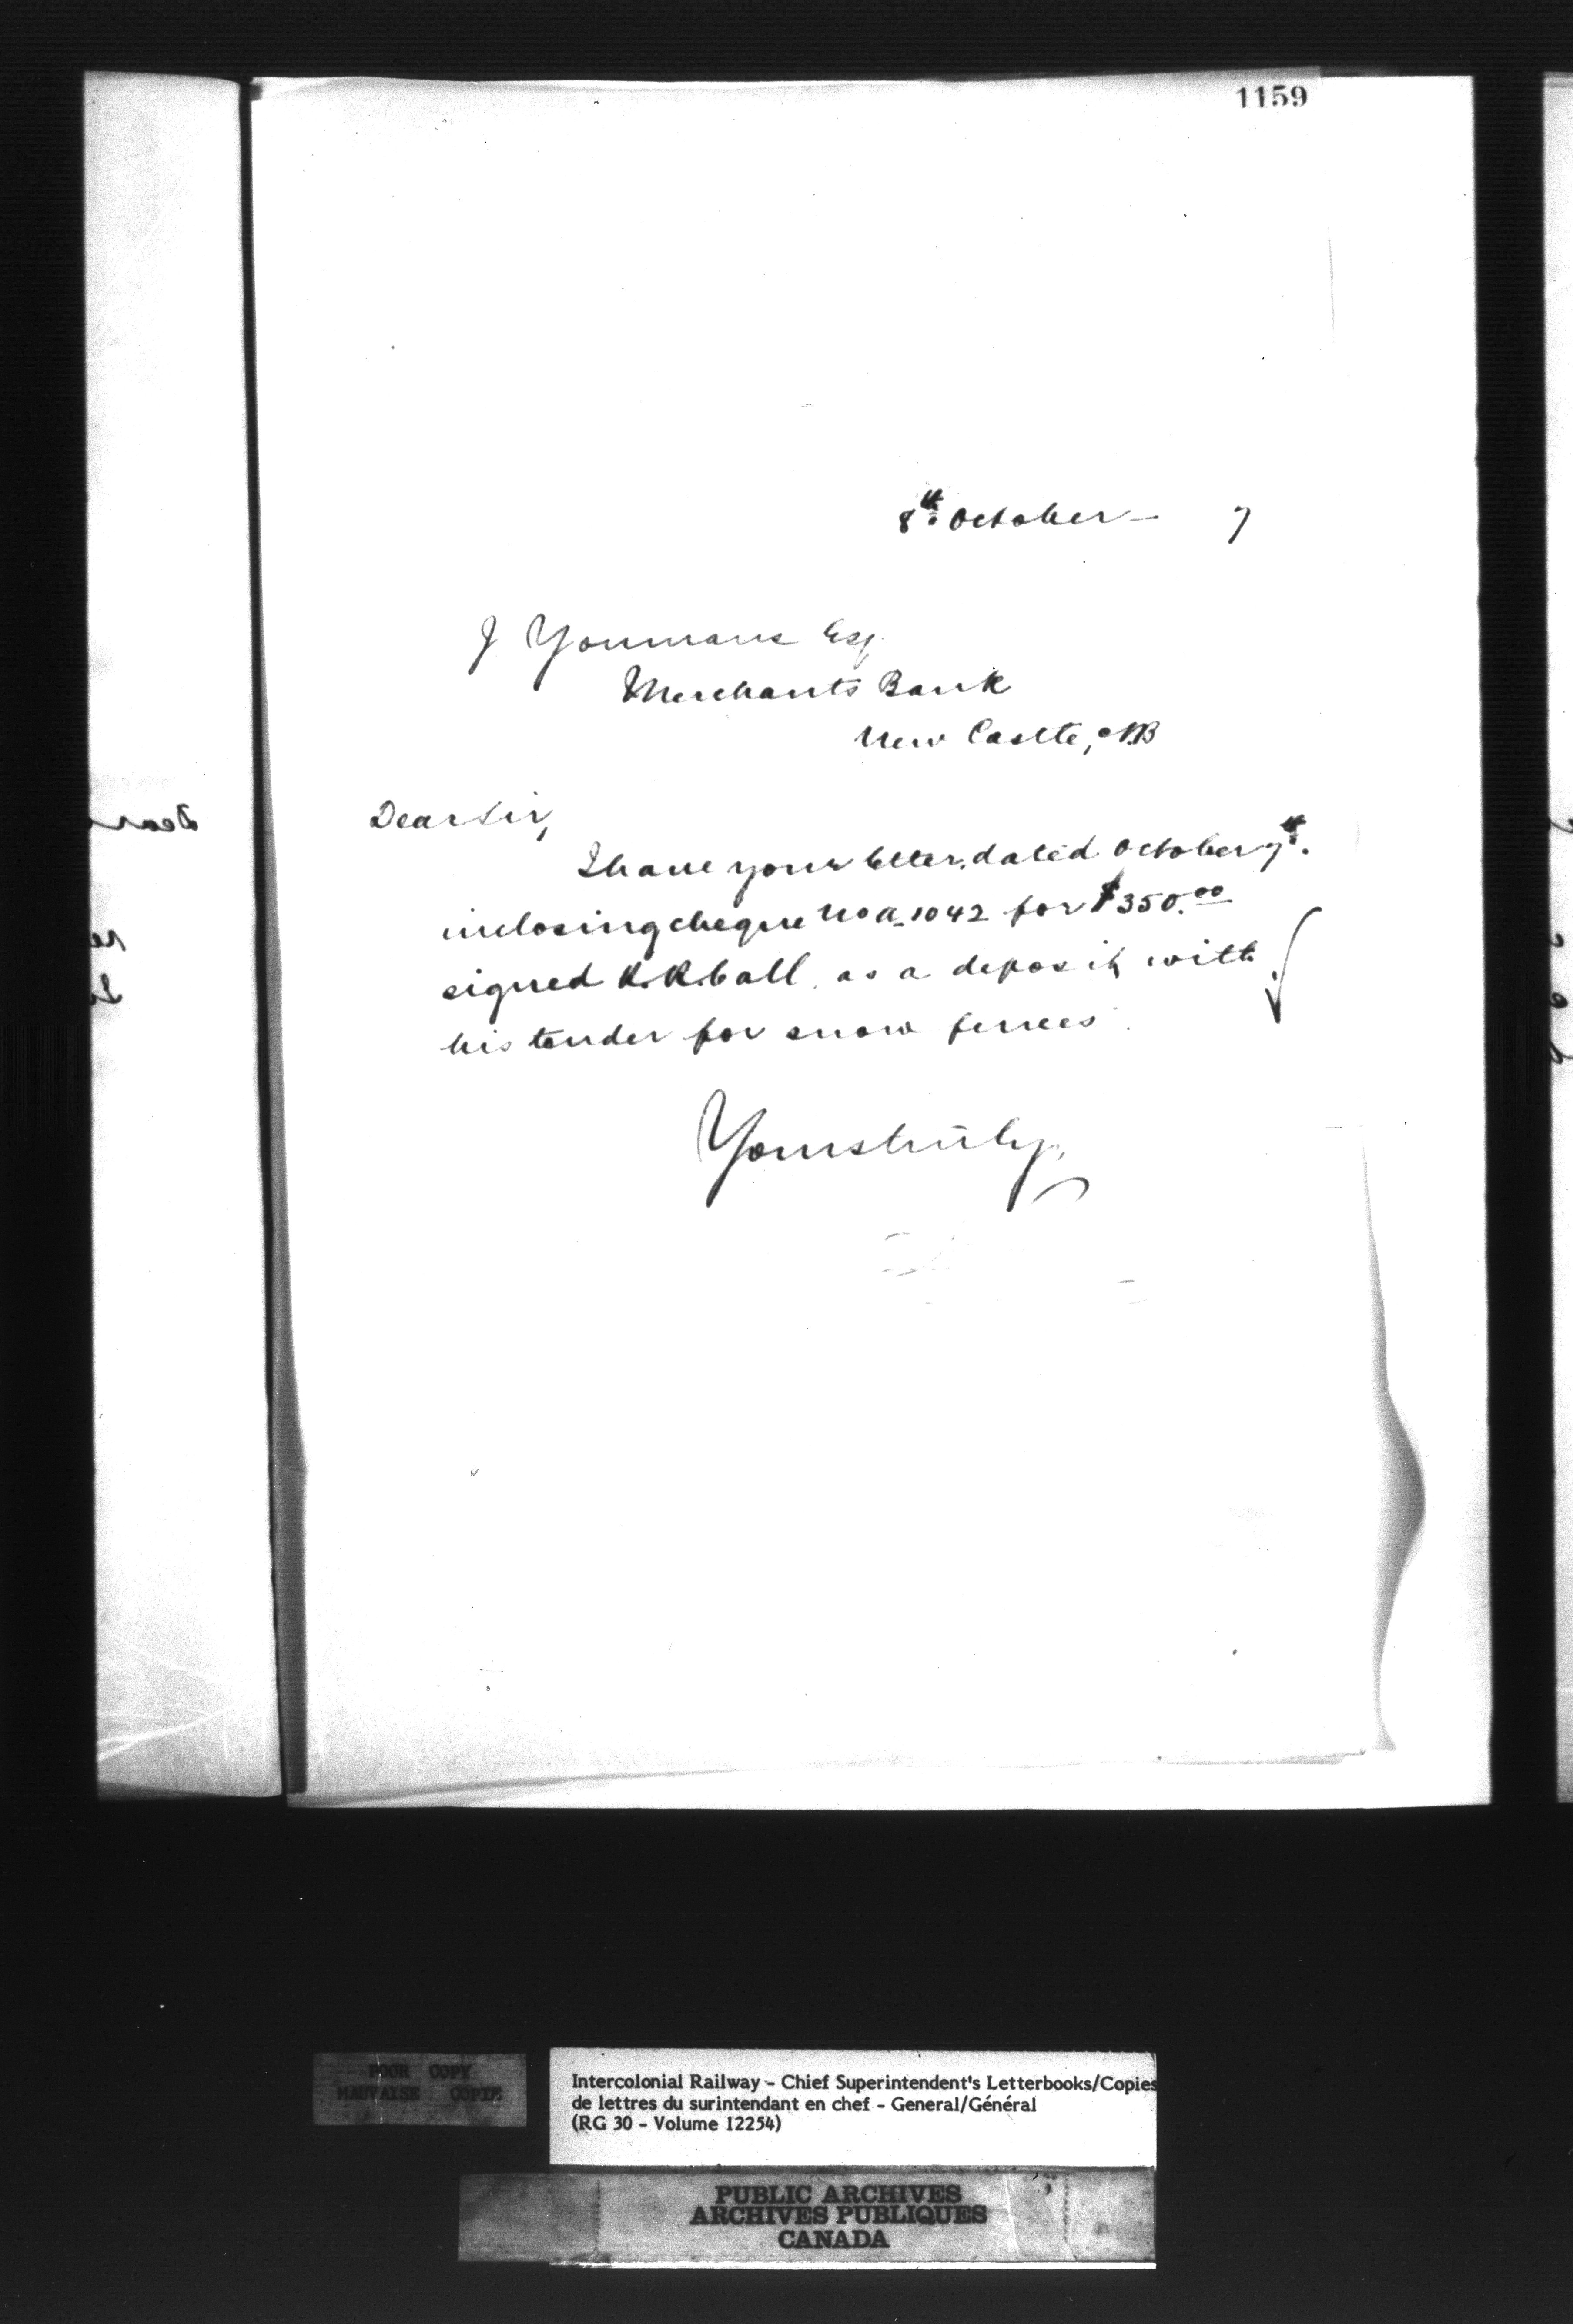 1159
8th October — 7
J Youmans Esq.
Merchants Bank
New Castle, NB
Dear Sir,
I have your letter, dated October 7th.
inclosing cheque No a_1042 for $350.00
signed R. R. Call, as a deposit with
his tender for snow fences.
Yours truly,
POOR COPY
MAUVAISE COPIE
Intercolonial Railway - Chief Superintendent's Letterbooks/Copies
de lettres du surintendant en chef - General/Général
(RG 30 - Volume 12254)
PUBLIC ARCHIVES
ARCHIVES PUBLIQUES
CANADA